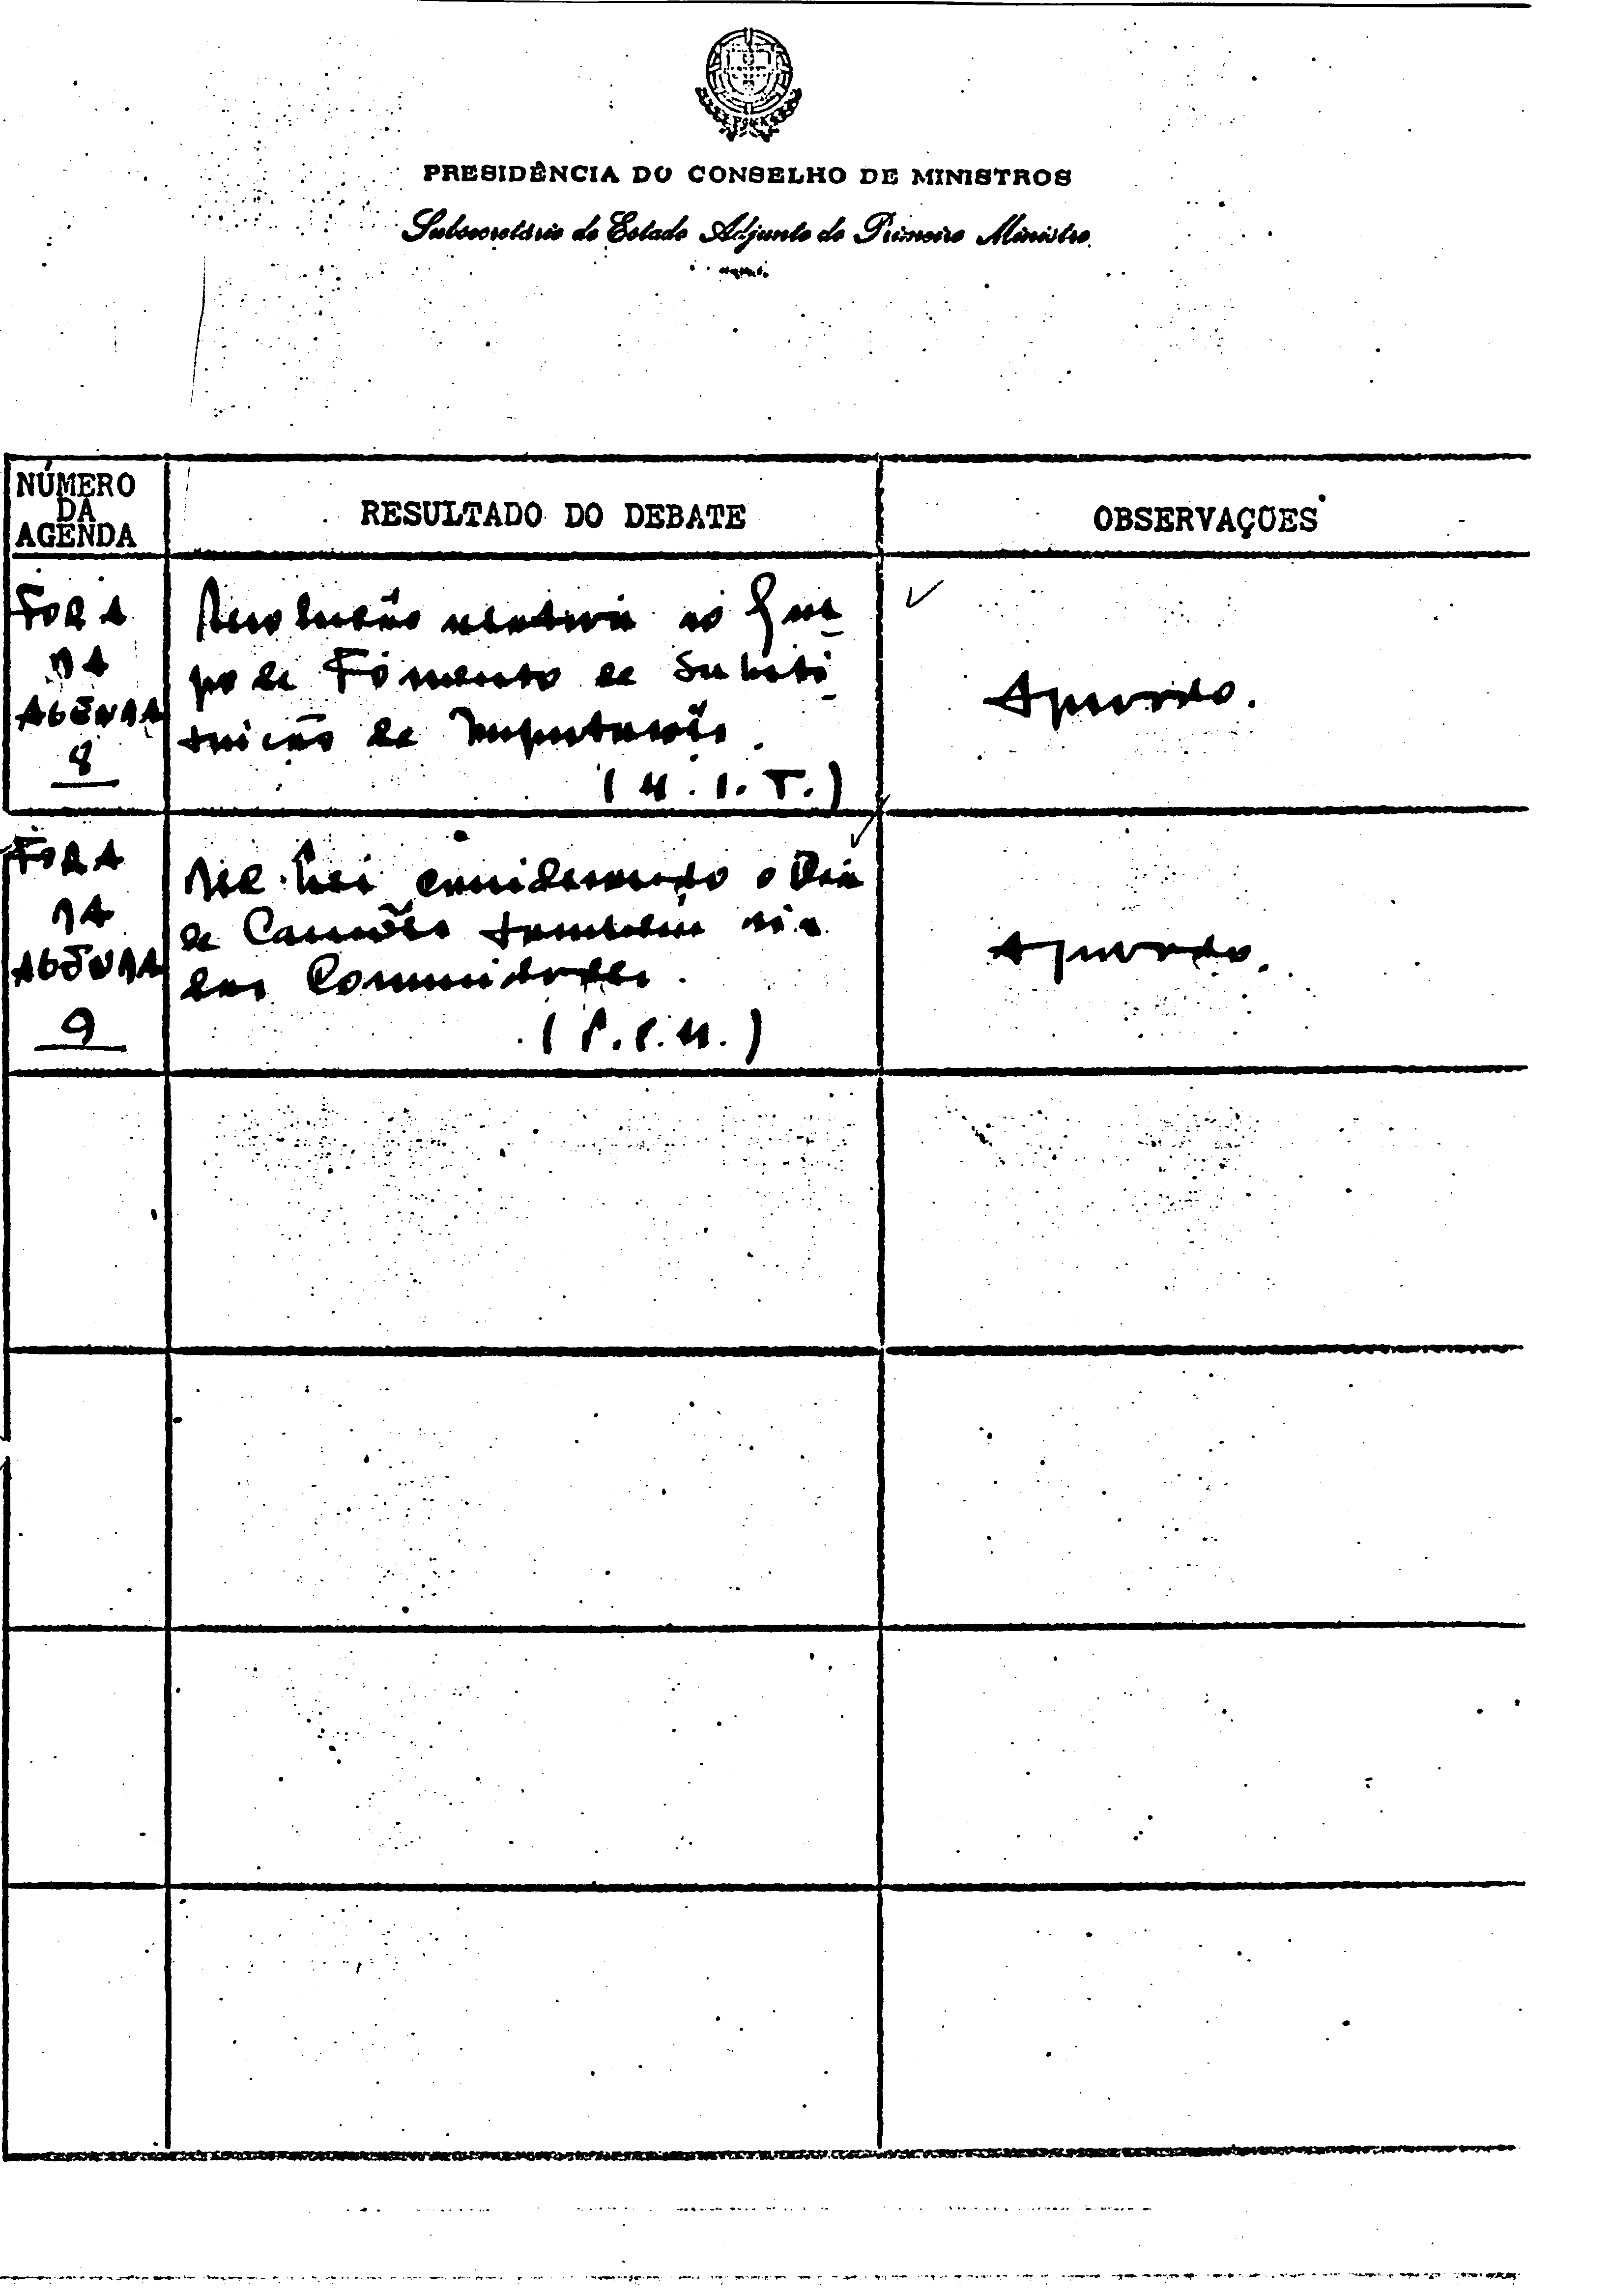 PRESIDÊNCIA DO CONSELHO DE MINISTROS
Subsecretário de Estado Adjunto do Primeiro Ministro
NÚMERO
DA
AGENDA
RESULTADO DO DEBATE
OBSERVAÇÕES
FORA
DA
AGENDA
8
Resolução relativa ao Gru-
po de Fomento de Substi-
tuição de Importação.
(M.I.T.)
Aprovado.
FORA
DA
AGENDA
9
Dec. Lei considerando o Dia
de Camões também dia
das Comunidades.
(P.C.M.)
Aprovado.